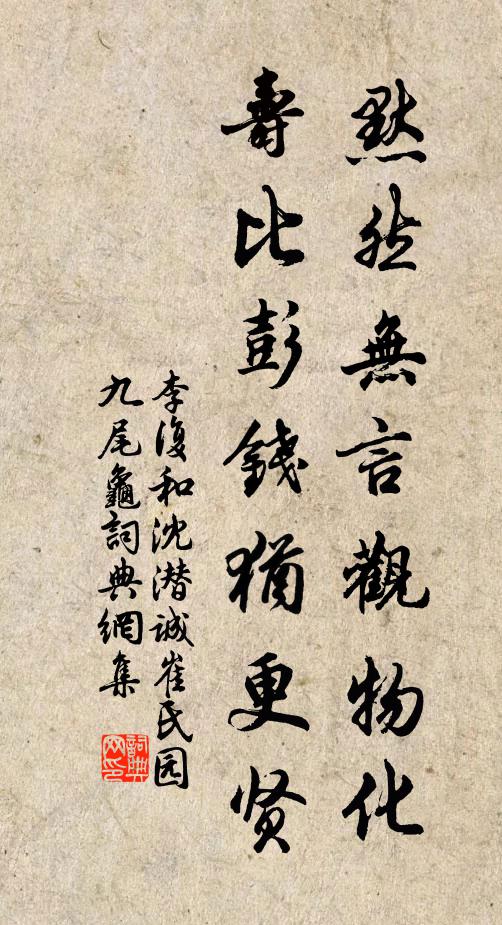 默然無言觀物化
壽比彭錢猶更贤
李復和沈潜诚崔氏园
九尾龜詞典網集
詞典网印